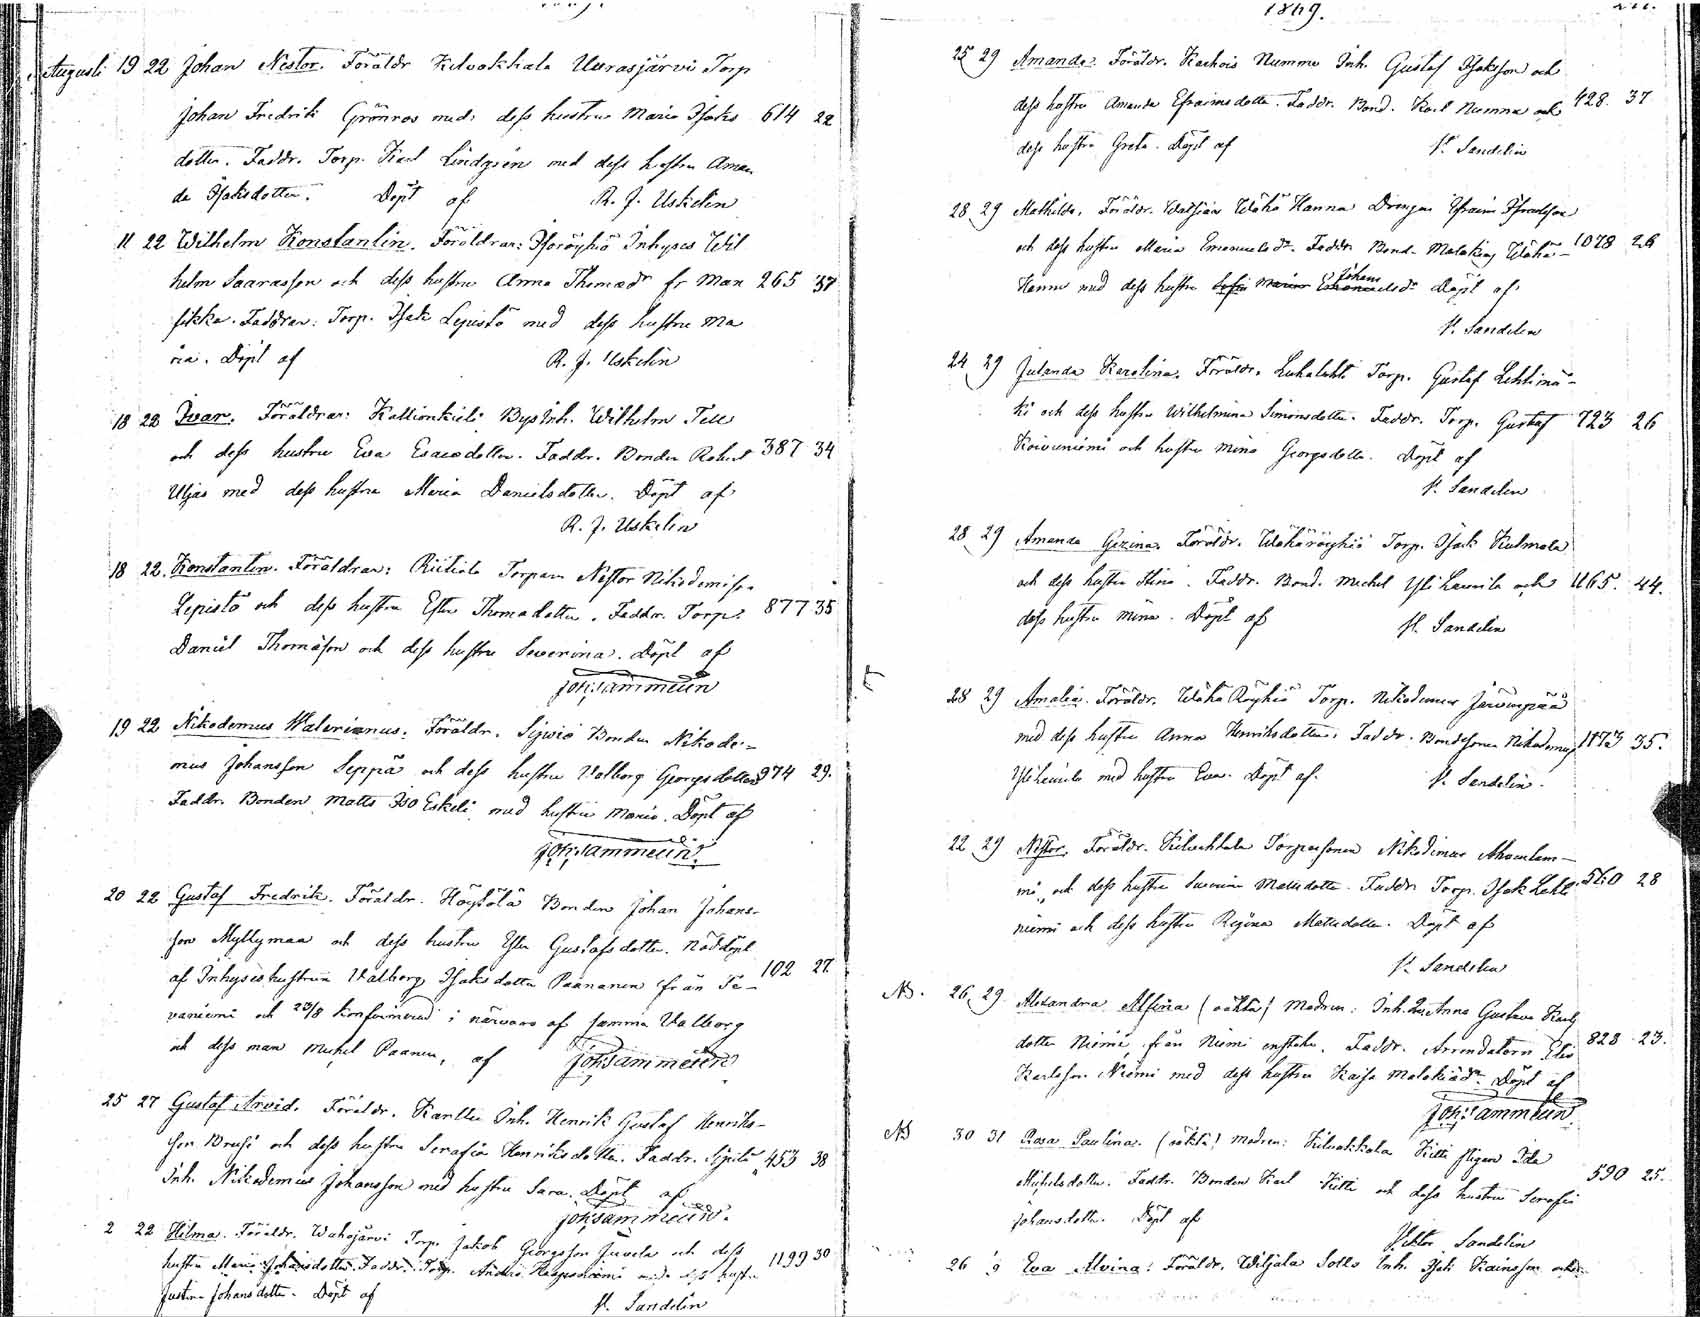 Augusti 19 22 Johan Nestor. Föräldr Kilvakkala Uurasjärvi Torp
Johan Fredrik Grönros med dess hustru Maria Isaks 614 22
dotter. Faddr. Torp. Karl Lindgren med dess hustru Aman
da Isaksdotter. Döpt af R. J. Uskelin
11 22 Wilhelm Konstantin. Föräldrar: Isoröyhiö Inhyses Wil
helm Saarasson och dess hustru Anna Thomasdr fr Man 265 37
sikka. Faddrar: Torp. Isak Lepistö med dess hustru Ma
ria. Döpt af R. J. Uskelin
18 22 Ivar. Föräldrar: Kallionkieli Bys Inh. Wilhelm Tell
och dess hustru Eva Esaiedotter. Faddr. Bonden Robert 387 34
Uljas med dess hustru Maria Danielsdotter. Döpt af
R. J. Uskelin
18 22. Konstantin. Föräldrar: Riitiala Torparn Nestor Nikodemiss.
Lepistö och dess hustru Ester Thomasdotter. Faddr. Torp. 877 35
Daniel Thomasson och dess hustru Severina. Döpt af
Joh. Sammelin
19 22 Nikodemus Walerianus. Föräldr. Sipuro Bonden Nikode-
mus Johansson Seppä och dess hustru Valborg Georgsdotter 974 29.
Faddr. Bonden Matts Iso Eskeli med hustru Maria. Döpt af
Joh. Sammelin.
20 22 Gustaf Fredrik. Föräldr. Höytölä Bonden Johan Johans-
son Myllymaa och dess hustru Ester Gustafsdotter. Nöddöpt
af Inhyseshustrun Valborg Isaksdotter Paananen från Ta- 102 27.
vaniemi och 23/8 konfirmerad i närvaro af samma Valborg
och dess man Michel Paanen, af Joh. Sammelin
25 27 Gustaf Arvid. Föräldr. Karttu Inh. Henrik Gustaf Henriks-
son Brusi och dess hustru Serafia Henriksdotter. Faddr. Sipilä 453 38
Inh. Nikodemus Johansson med hustru Sara. Döpt af
Joh. Sammelin.
2 22 Hilma. Föräldr. Wahojärvi Torp. Jakob Georgsson Juvela och dess
hustru Maria Johansdotter. Faddr. Torp. Anders Haapaniemi med dess hustru 1199 30
Justina Johansdotter. Döpt af V. Sandelin
1869.
25 29 Amanda. Föräldr. Karhois Nummi Inh. Gustaf Isaksson och
dess hustru Amanda Efraimsdotter. Faddr. Bond. Karl Numma och 428. 37
dess hustru Greta. Döpt af V. Sandelin
28 29 Mathilda. Föräldr. Wähä Hanna Drengen Efraim
och dess hustru Maria Emanuelsdr. Faddr. Bond. Malakias Wähä- 1078 26
Hannu med dess hustru Maria Johans Döpt af
V. Sandelin
24 29 Julanda Karolina. Föräldr. Luhalahti Torp. Gustaf Lehtimä-
ki och dess hustru Wilhelmina Simonsdotter. Faddr. Torp. Gustaf 723 26
Koivuniemi och hustru Mina Georgsdotter. Döpt af
V. Sandelin
28 29 Amanda Gizina. Föräldr. Wähäröyhiö Torp. Isak Kulmala
och dess hustru Stina. Faddr. Bond. Michel Yli Launila och 1165. 44.
dess hustru Mina. Döpt af V. Sandelin
28 29 Amalia. Föräldr. Wähä Röyhiö Torp. Nikodemus Järvenpää
med dess hustru Anna Henriksdotter. Faddr. Bondsonen Nikodemus 1173 35.
Yli Launila med hustru Eva. Döpt af. V. Sandelin.
22 29 Nestor. Föräldr. Kilvakkala Torparsonen Nikodemus Ahvenlam-
mi, och dess hustru Mattsdotter. Faddr Torp. Isak Leht 560 28
niemi och dess hustru Regina Mattsdotter. Döpt af
V. Sandelin
NB. 26 29 Alexandra Alfina (oäkta) Modren: Inh. Anna Gustava Karls
dotter Niemi, från Niemi enstaka. Faddr. Arrendatorn 828 23.
Karlsson Niemi med dess hustru Kaisa Malakiasdr. Döpt af
Joh. Sammelin.
NB 30 31 Rosa Paulina. (oäkta) Modren: Kilvakkala Kitti pigan Ida
Michelsdotter. Faddr. Bonden Karl Kitti och dess hustru Serafia 590 25.
Johansdotter. Döpt af
Viktor Sandelin
26 Eva Alvina: Föräldr. Wiljala Inh. Isak